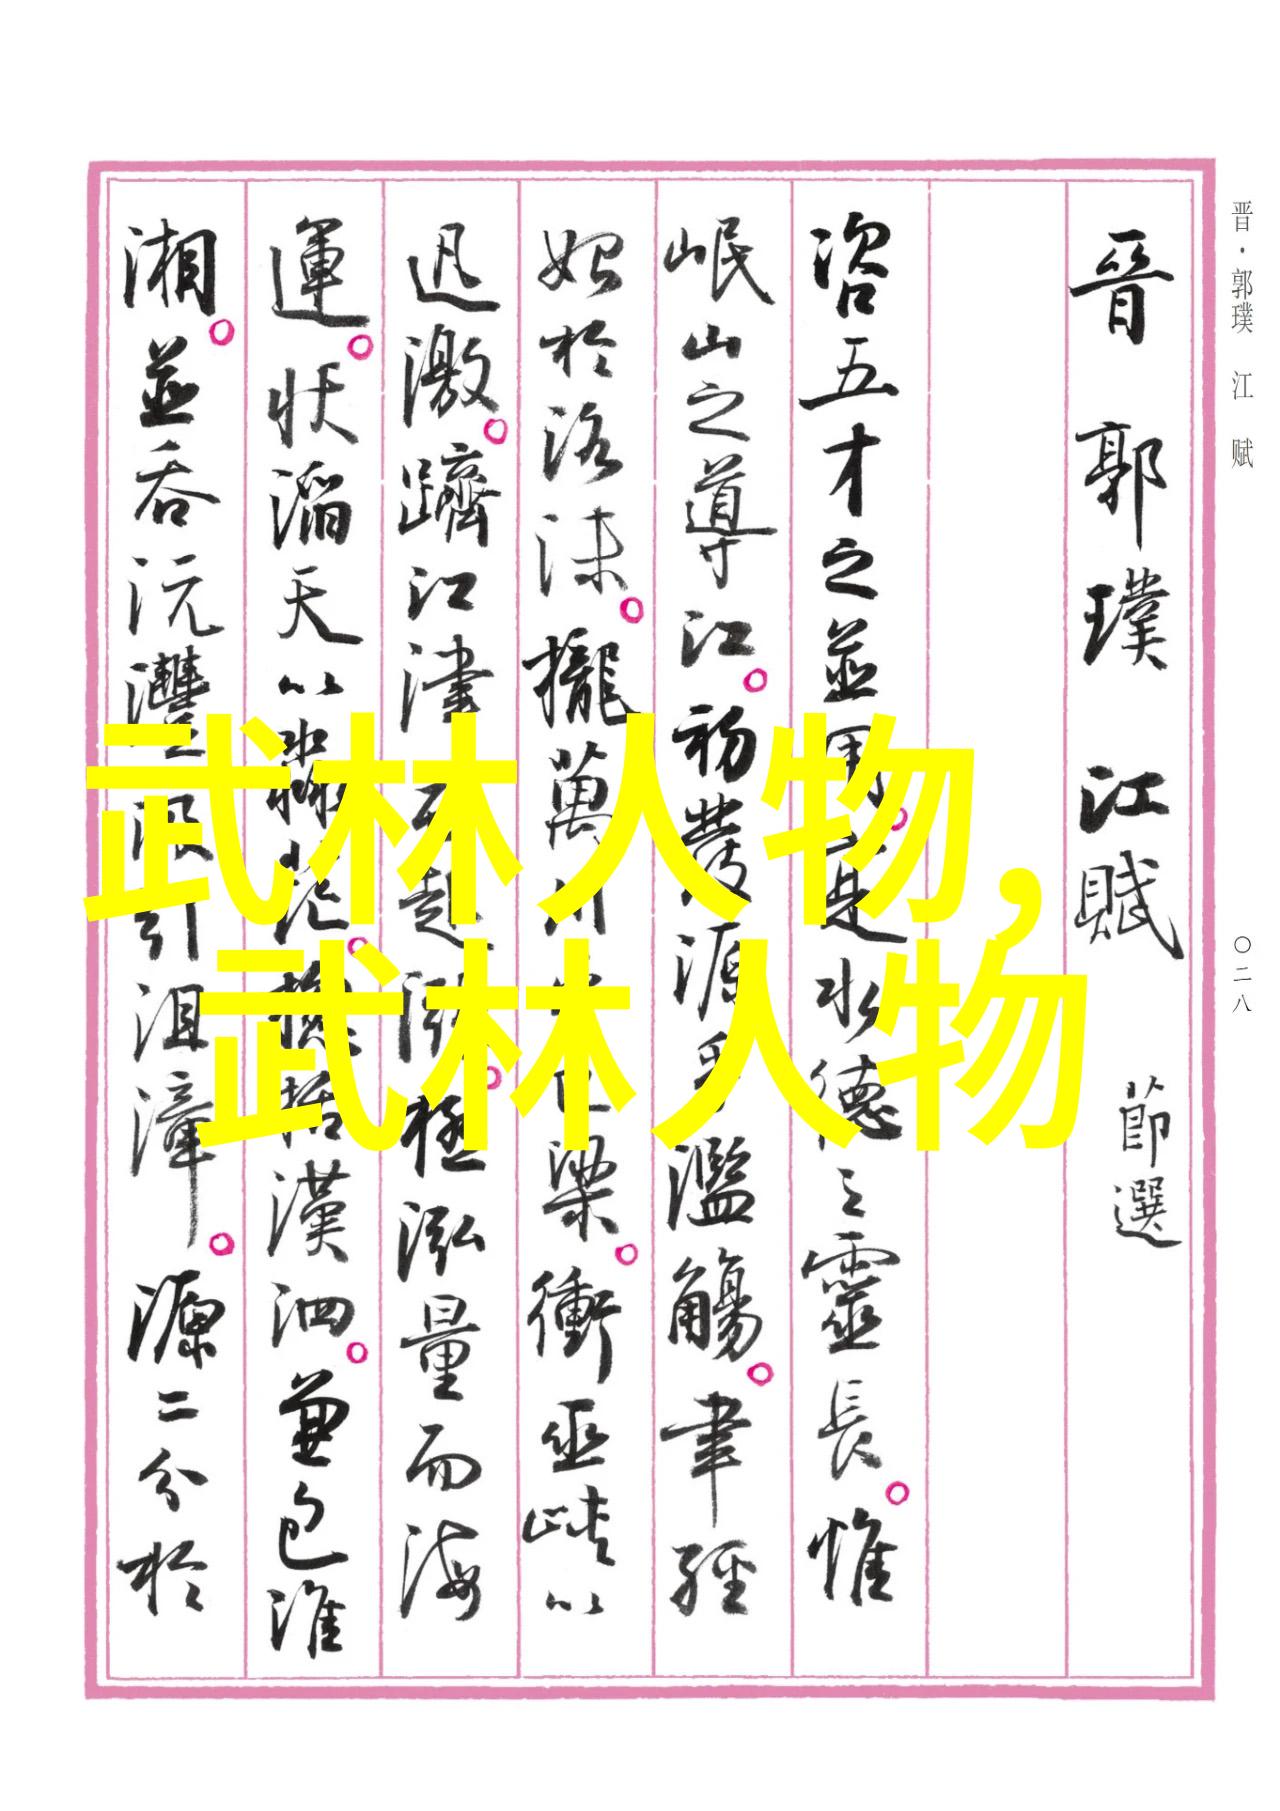 晋·郭璞 江赋
〇二八
晉郭璞江賦 節選
咨五才之並用。寔水德之靈長。惟
岷山之導江。初發源乎濫觴。聿經
始於洛沬。攏萬川乎巴梁。衝巫峽以
迅激。躋江津而起漲。極泓量而海
運。狀滔天以淼茫。總括漢泗。兼包淮
湘。並吞沅澧。汲引沮漳。源二分於
武林人物，
武林人物